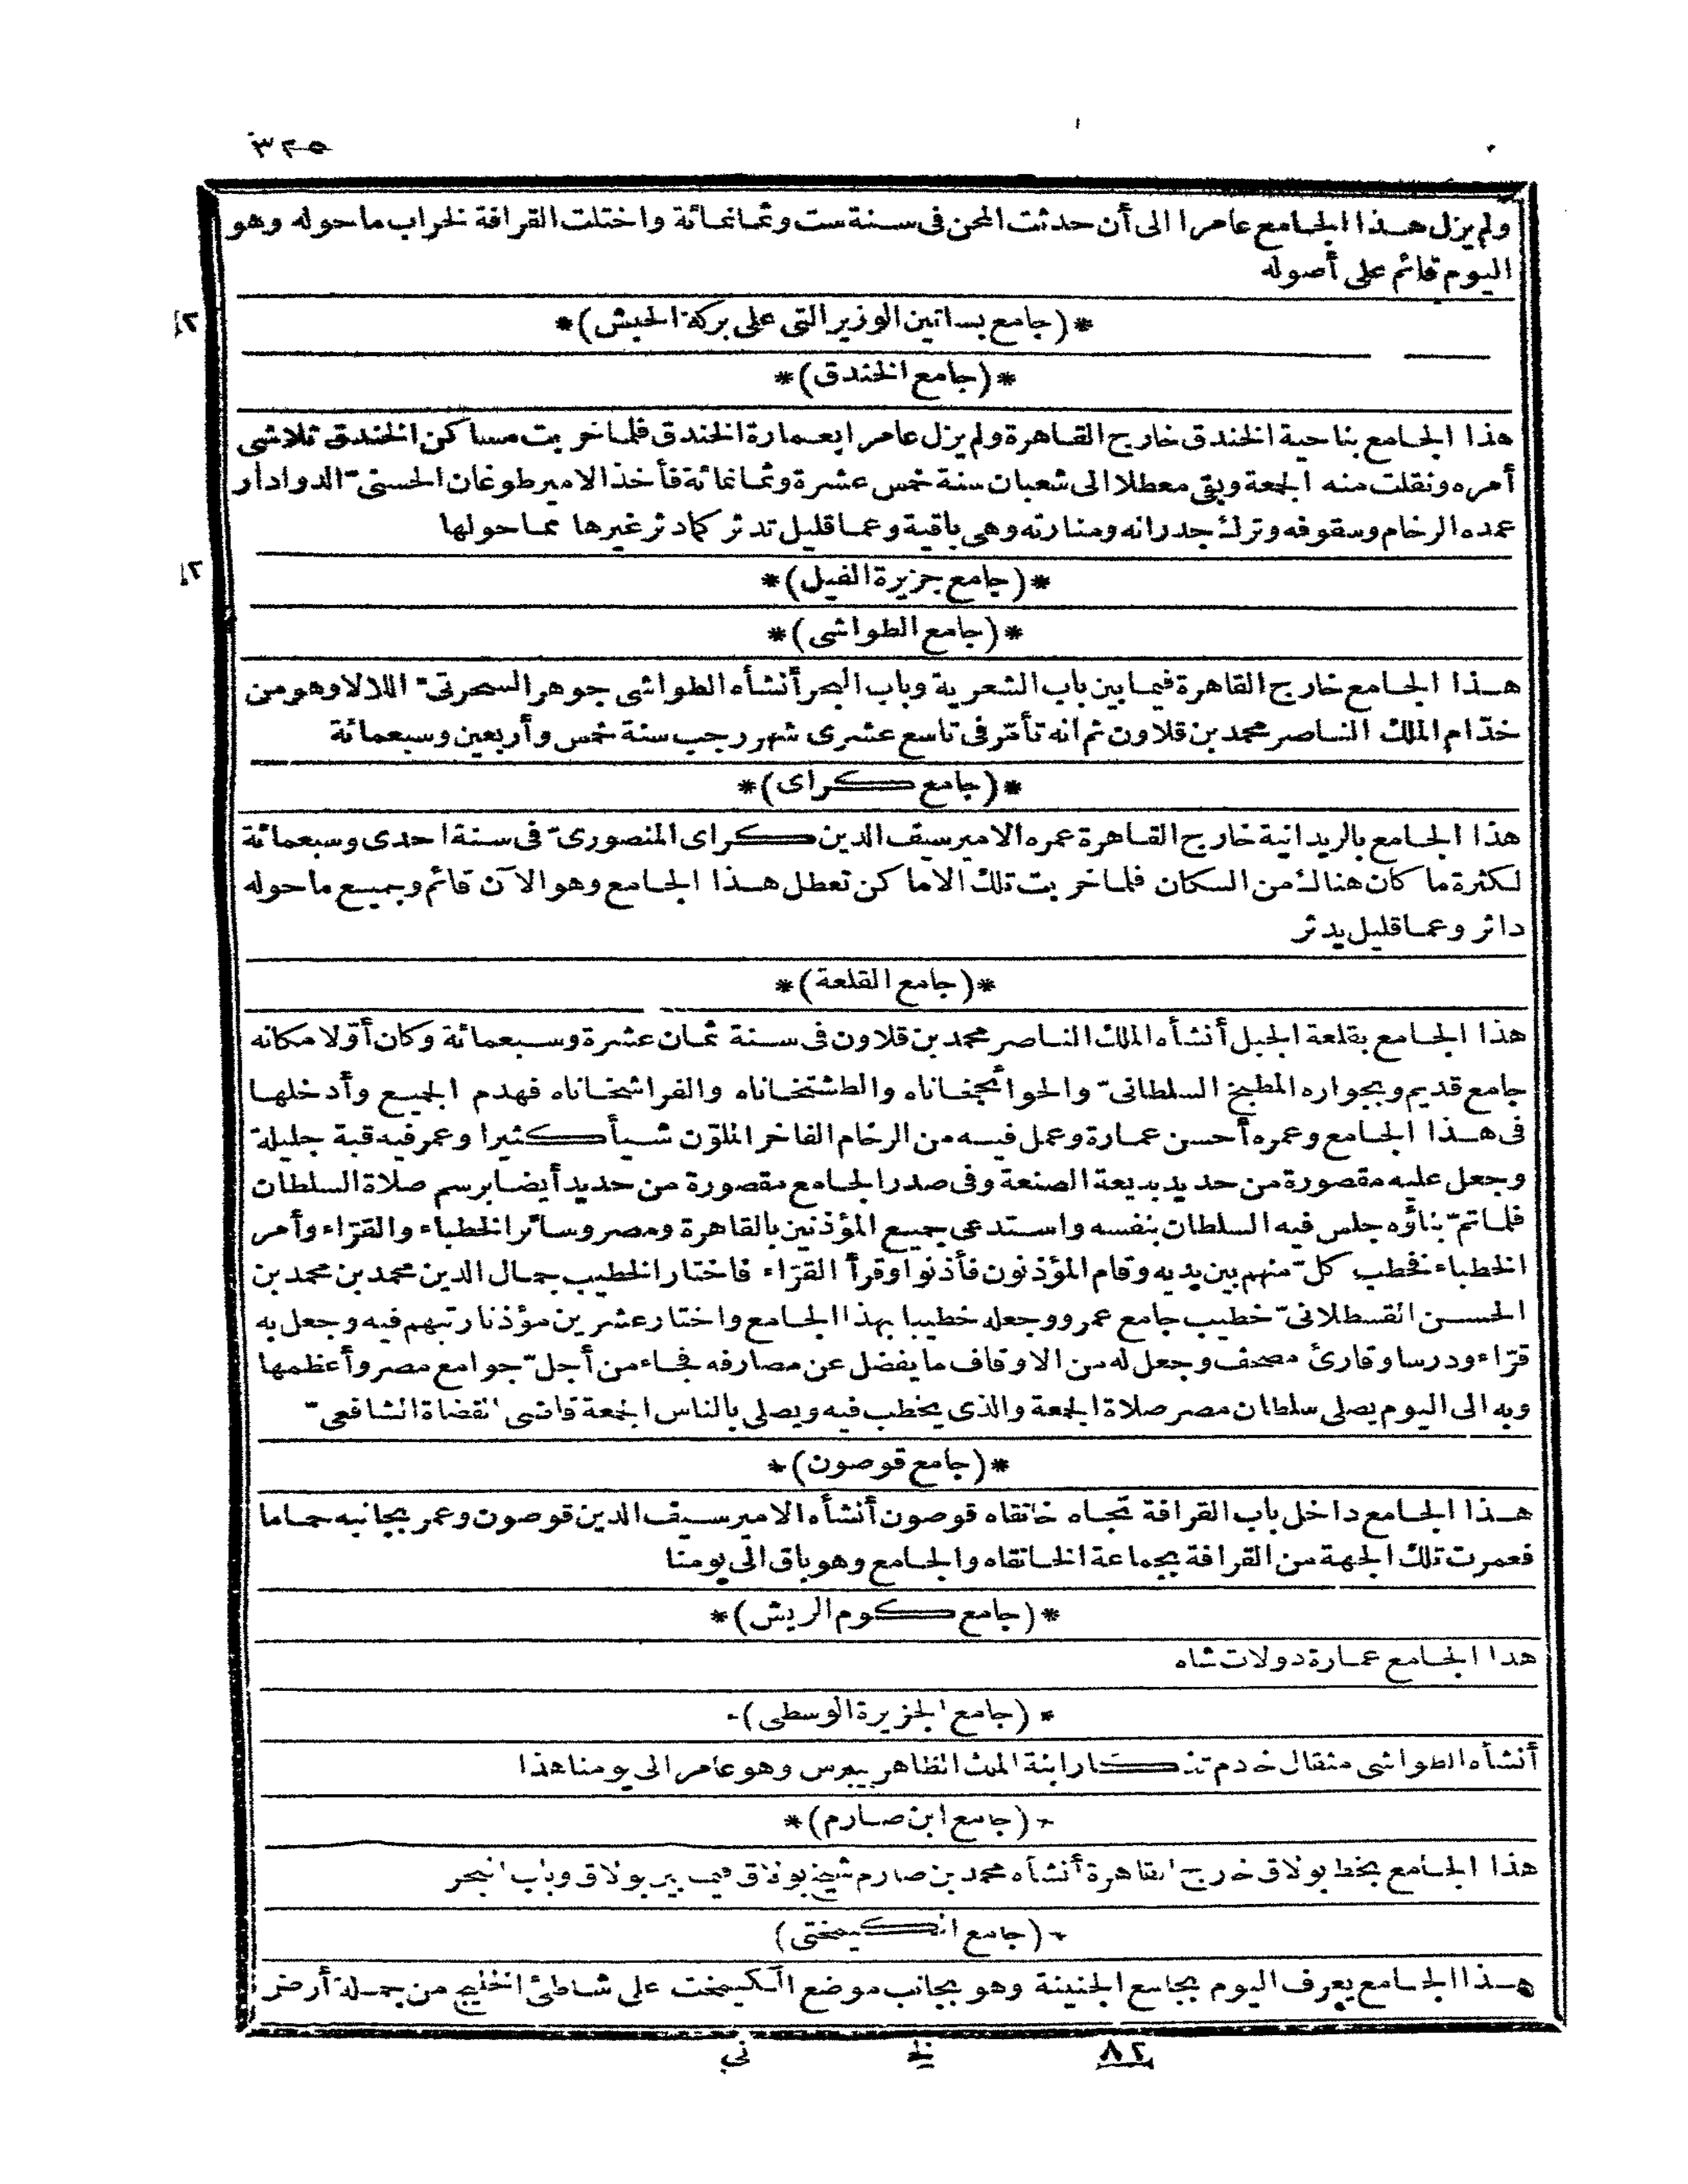 ٣٢٥
ولم يزل هذا الجامع عامرا الى أن حدثت المحن فى سنة ست وثمانمائة واختلت القرافة لخراب ماحوله وهو
اليوم قائم على أصوله
*(جامع بساتين الوزير التى على بركة الحبش)*
*(جامع الخندق)*
هذا الجامع بناحية الخندق خارج القاهرة ولم يزل عامرا بعمارة الخندق فلما خربت مساكن الخندق تلاشى
أمره ونقلت منه الجمعة وبقى معطلا الى شعبان سنة خمس عشرة وثمانمائة فأخذ الامير طوغان الحسنىّ الدوادار
عمده الرخام وسقوفه وترك جدرانه ومنارته وهى باقية وعما قليل تدثر كمادثر غيرها مما حولها
*(جامع جزيرة الفيل)*
*(جامع الطواشى)*
هذا الجامع خارج القاهرة فيما بين باب الشعرية وباب البحر أنشأه الطواشى جوهر السحرتىّ اللالا وهو من
خدّام الملك الناصر محمد بن قلاون ثم انه تأمّر فى تاسع عشرى شهر رجب سنة خمس وأربعين وسبعمائة
*(جامع كراى)*
هذا الجامع بالريدانية خارج القاهرة عمره الامير سيف الدين كراى المنصورىّ فى سنة احدى وسبعمائة
لكثرة ما كان هناك من السكان فلما خربت تلك الاماكن تعطل هذا الجامع وهو الآن قائم وجميع ماحوله
داثر وعما قليل يدثر
*(جامع القلعة)*
هذا الجامع بقلعة الجبل أنشأه الملك الناصر محمد بن قلاون فى سنة ثمان عشرة وسبعمائة وكان أوّلا مكانه
جامع قديم وبجواره المطبخ السلطانىّ والحوائجخاناه والطشتخاناه والفراشخاناه فهدم الجميع وأدخلها
فى هذا الجامع وعمره أحسن عمارة وعمل فيه من الرخام الفاخر الملوّن شيأ كثيرا وعمر فيه قبة جليلة
وجعل عليه مقصورة من حديد بديعة الصنعة وفى صدر الجامع مقصورة من حديد أيضا برسم صلاة السلطان
فلما تمّ بناؤه جلس فيه السلطان بنفسه واستدعى جميع المؤذنين بالقاهرة ومصر وسائر الخطباء والقرّاء وأمر
الخطباء فخطب كلّ منهم بين يديه وقام المؤذنون فأذنوا وقرأ القرّاء فاختار الخطيب جمال الدين محمد بن محمد بن
الحسن القسطلانىّ خطيب جامع عمرو وجعله خطيبا بهذا الجامع واختار عشرين مؤذنا رتبهم فيه وجعل به
قرّاء ودرسا وقارئ مصحف وجعل له من الاوقاف ما يفضل عن مصارفه فجاء من أجلّ جوامع مصر وأعظمها
وبه الى اليوم يصلى سلطان مصر صلاة الجمعة والذى يخطب فيه ويصلى بالناس الجمعة قاضى القضاة الشافعىّ
*(جامع قوصون)*
هذا الجامع داخل باب القرافة تجاه خانقاه قوصون أنشأه الامير سيف الدين قوصون وعمر بجانبه حماما
فعمرت تلك الجهة من القرافة بجماعة الخانقاه والجامع وهو باق الى يومنا
*(جامع كوم الريش)*
هذا الجامع عمارة دولات شاه
*(جامع الجزيرة الوسطى)*
أنشأه الطواشى مثقال خادم تذكار ابنة الملك الظاهر بيبرس وهو عامر الى يومنا هذا
*(جامع ابن صارم)*
هذا الجامع بخط بولاق خارج القاهرة أنشأه محمد بن صارم شيخ بولاق فيما بين بولاق وباب البحر
*(جامع الكيمختى)
هذا الجامع يعرف اليوم بجامع الجنينة وهو بجانب موضع الكيمخت على شاطئ الخليج من جملة أرض
٨٢ خط نى